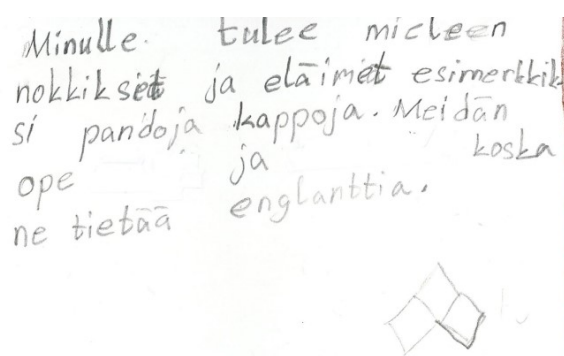 Minulle. tulee micleen
nokkikset ja eläimet esimerkkik
si pandoja kappoja. Meidän
ope ja koska
ne tietää englanttia.